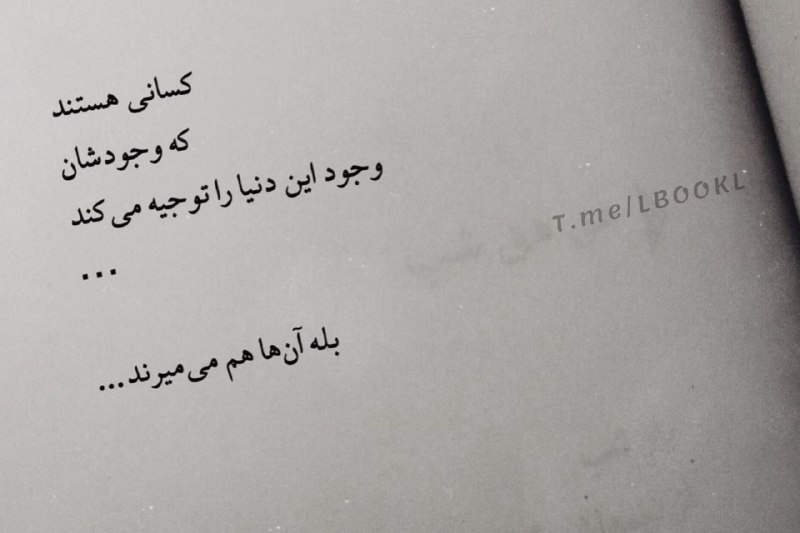 کسانی هستند
که وجودشان
وجود این دنیا را توجیه می کند
...
بله آن‌ها هم می‌میرند...
T.me/LBOOKL